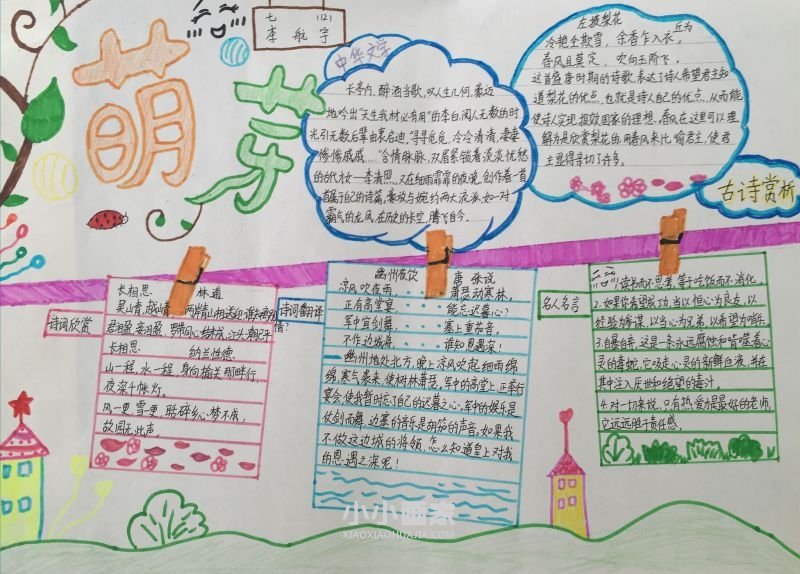 七 (12)
李航宇
萌芽
中华文学
长亭内，醉酒当歌，叹人生几何，豪迈
地吟出“天生我材必有用”的李白，阅人无数的时
光引无数后辈由衷启迪，寻寻觅觅，冷冷清清，凄凄
惨惨戚戚……含情脉脉，双眉紧锁着淡淡忧愁
的古代才女—李清照，又在细雨霏霏的夜晚，创作着一首
首属于自己的诗篇，豪放与婉约两大流派，如一对
霸气的龙凤，在历史的长空，腾飞自今。
左掖梨花
丘为
冷艳全欺雪，余香乍入衣。
春风且莫定，吹向玉阶飞。
这首盛唐时期的诗歌，表达了诗人希望君主知
道梨花的优点，也就是诗人自己的优点，从而能
使诗人实现报效国家的理想。春风在这里可以理
解为是欣赏梨花的，用春风来比喻君主，使君
主显得亲切了许多。
古诗赏析
诗词欣赏
长相思 林逋
吴山青，越山青，两岸青山相送迎，谁知离别
情？
君泪盈，妾泪盈，罗带同心结未成，江头潮已平
长相思 纳兰性德
山一程，水一程，身向榆关那畔行，
夜深千帐灯。
风一更，雪一更，聒碎乡心梦不成，
故园无此声。
诗词翻译
幽州夜饮 唐 张说
凉风吹夜雨，萧瑟动寒林。
正有高堂宴，能忘迟暮心？
军中宜剑舞，塞上重笳音。
不作边城将，谁知恩遇深！
幽州地处北方，晚上凉风吹起细雨绵
绵，寒气袭来，使树林萧瑟，军中的高堂上，正举行
宴会，使我暂时忘了自己的迟暮之心，军中的娱乐是
仗剑而舞，边塞的音乐是胡笳的声音，如果我
不做这边城的将领，怎么知道皇上对我
的恩遇之深呢！
名人名言
1.读书而不思考，等于吃饭而不消化。
2.如果你希望成功，当以恒心为良友，以
经验为参谋，以当心为兄弟，以希望为哨兵
3.自暴自弃，这是一条永远腐蚀和啃噬着心
灵的毒蛇，它吸走心灵的新鲜血液，并在
其中注入厌世和绝望的毒汁。
4.对一切来说，只有热爱才是最好的老师，
它远远胜于责任感。
小小画家
XIAOXIAOHUAJIA.COM